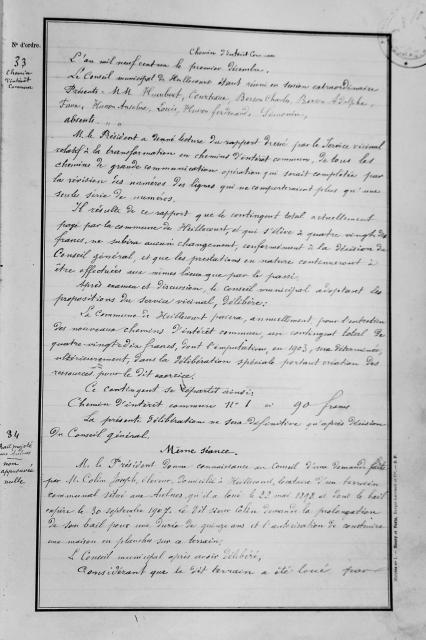 N° d'ordre.
33
Chemin
d'intérêt
Commun
Chemin d'intérêt Commun
L'an mil neuf cent un le premier décembre,
Le Conseil municipal de Heillecourt étant réuni en session extraordinaire
Présents: M.M. Humbert, Courtois, Berson Charles, Berson Adolphe,
Favre, Huron Anselme, Louis, Huron ferdinand,
absents: " "
M. le Président a donné lecture du rapport dressé par le Service vicinal
relatif à la transformation en chemins d'intérêt commun, de tous les
chemins de grande communication opération qui serait complétée par
la révision des numéros des lignes qui ne comporteraient plus qu'une
seule série de numéros.
Il résulte de ce rapport que le contingent total actuellement
payé par la commune de Heillecourt, et qui s'élève à quatre vingt dix
francs, ne subira aucun changement, conformément à la décision du
Conseil général, et que les prestations en nature continueront à
être effectuées aux mêmes lieux que par le passé.
Après examen et discussion, le Conseil municipal adoptant les
propositions du service vicinal, délibère:
La Commune de Heillecourt paiera, annuellement pour l'entretien
des nouveaux chemins d'intérêt commun, un contingent total de
quatre-vingt dix francs, dont l'imputation, en 1903, sera déterminée,
ultérieurement, dans la délibération spéciale portant création des
ressources pour le dit exercice.
Ce contingent se répartit ainsi:
Chemin d'intérêt commun N° 1 à 90 francs
La présente délibération ne sera définitive qu'après décision
Du Conseil général.
34
non
approuvée
nulle
Même séance.
M. le Président donne connaissance au Conseil d'une demande faite
par M. Colin Joseph, domicilié à Heillecourt, locataire d'un terrain
communal situé aux Aulnes qu'il a loué le 22 mai 1898 et dont le bail
expire le 30 septembre 1907. Le dit sieur Colin demande la prolongation
de son bail pour une durée de quinze ans et l'autorisation de construire
une maison en planches sur ce terrain;
Le Conseil municipal après avoir délibéré,
Considérant que le dit terrain a été loué par